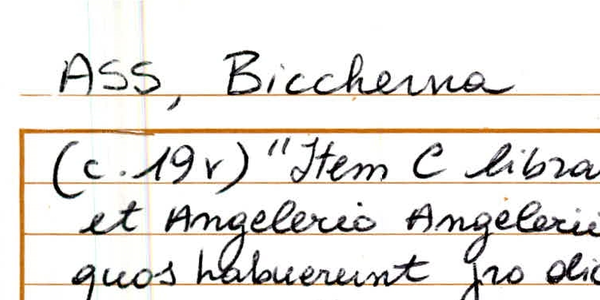 ASS, Biccherna
(c. 19v) "Item C libra
et Angelerio Angelerii
quos habuerunt pro dic